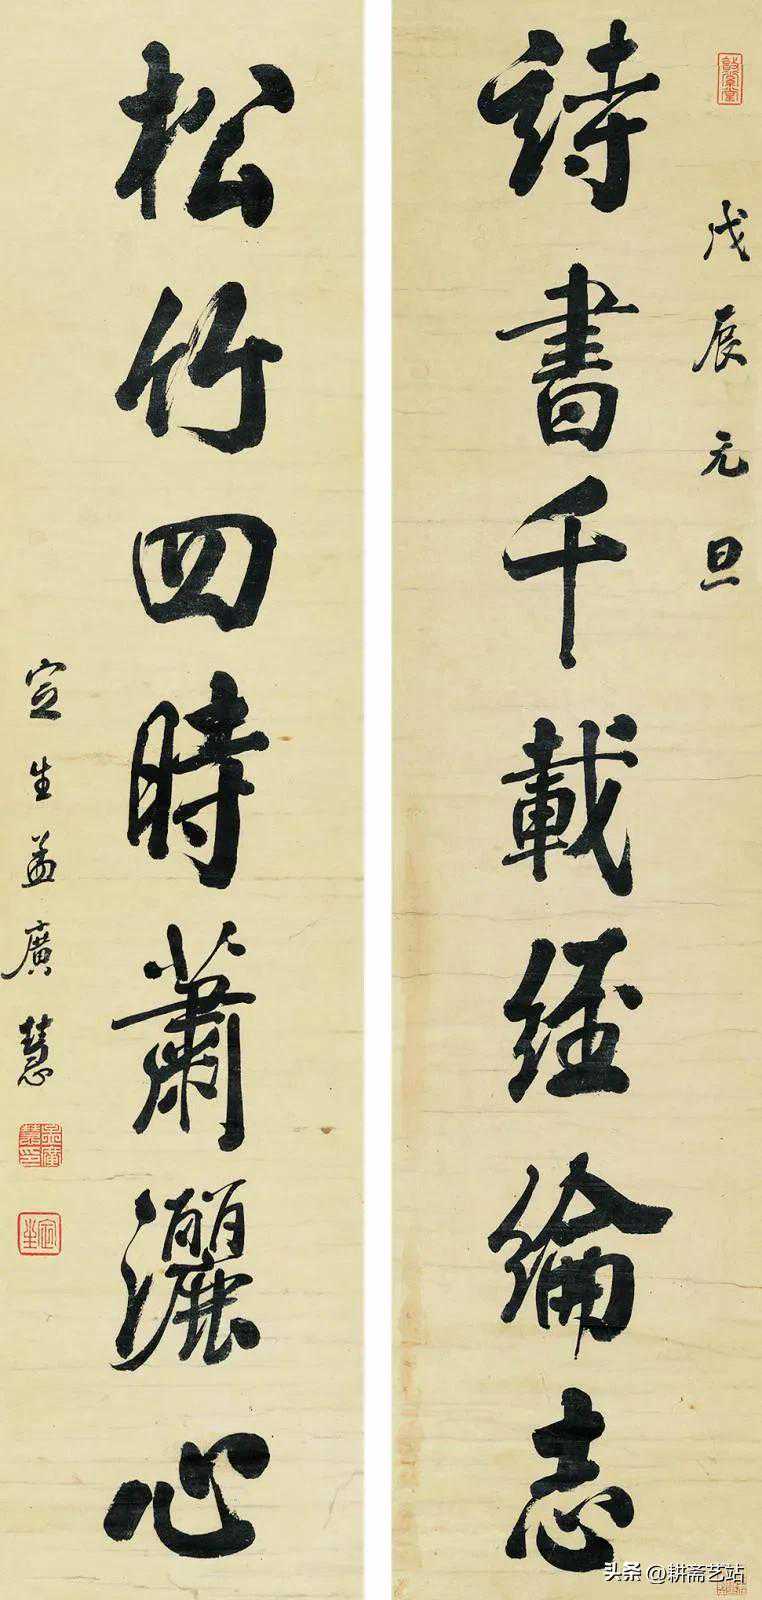 戊辰元旦
詩書千載經綸志
松竹四時蕭灑心
定生孟廣慧
孟廣慧印
定生
头条 @耕斋艺站